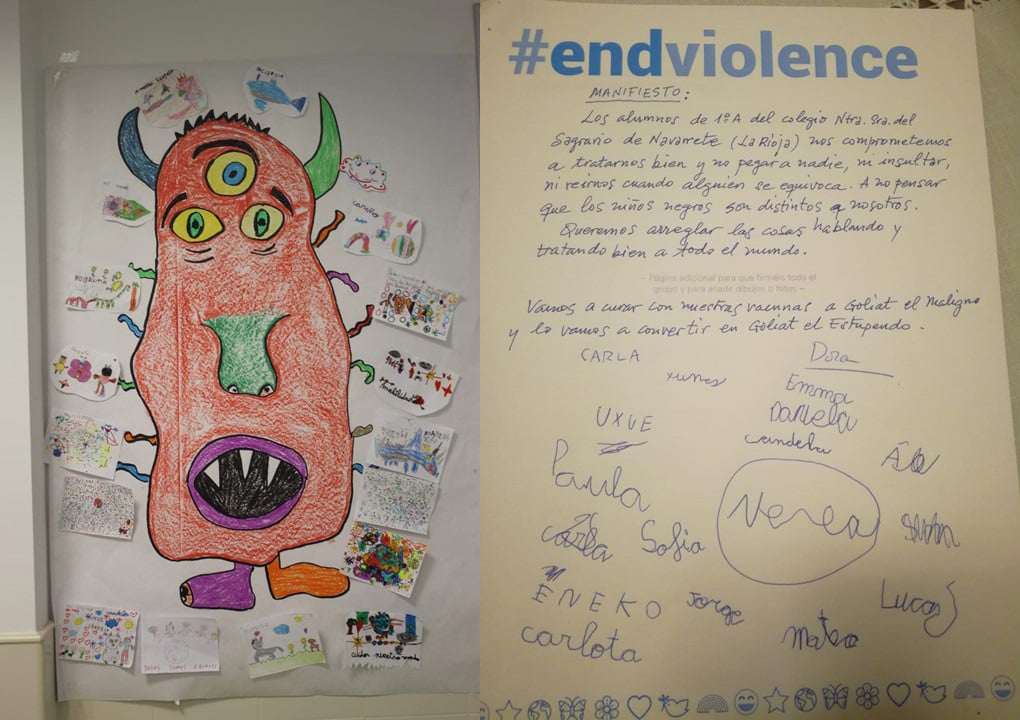 cariño
maldidad
TODOS SOMOS IGUALES
cuidar nuestro mundo
#endviolence
MANIFIESTO:
Los alumnos de 1º A del colegio Ntra. Sra. del
Sagrario de Navarrete (La Rioja) nos comprometemos
a tratarnos bien y no pegar a nadie, ni insultar,
ni reirnos cuando alguien se equivoca. A no pensar
que los niños negros son distintos a nosotros.
Queremos arreglar las cosas hablando y
tratando bien a todo el mundo.
– Página adicional para que firméis todo el
grupo y para añadir dibujos o fotos –
Vamos a curar con nuestras vacunas a Goliat el Maligno
y lo vamos a convertir en Goliat el Estupendo.
CARLA
Dora
Emma
UXUE
Daniela
Candela
Paula
Nerea
Carla
Sofia
ENEKO
Jorge
Lucas
carlota
Mateo